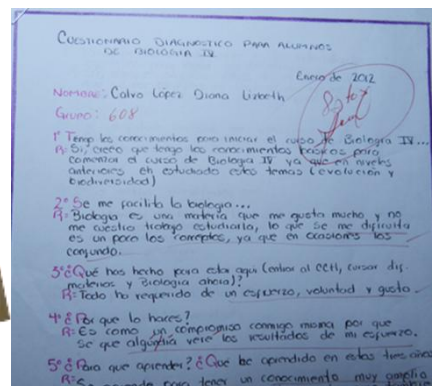 CUESTIONARIO DIAGNOSTICO PARA ALUMNOS
DE BIOLOGIA IV
Enero de 2012
Nombre: Calvo López Diana Lizbeth
Grupo: 608
1° Tengo los conocimientos para iniciar el curso de Biologia IV...
R= Si, creo que tengo los conocimientos básicos para
comenzar el curso de Biologia IV ya que en niveles
anteriores eh estudiado estos temas (evolución y
biodiversidad)
2° Se me facilita la biologia...
R= Biologia es una materia que me gusta mucho y no
me cuesta trabajo estudiarla, lo que se me dificulta
es un poco los conceptos, ya que en ocasiones los
confundo.
3° ¿Qué has hecho para esta aqui (entrar al CCH, cursar dif.
materias y Biologia ahora)?
R= Todo ha requerido de un esfuerzo, voluntad y gusto
4° ¿Por que lo haces?
R= Es como un compromiso conmigo misma por que
se que algún día veré los resultados de mi esfuerzo.
5° ¿Para que aprender? ¿Qué he aprendido en estos tres años
R= Se aprende para tener un conocimiento muy amplio